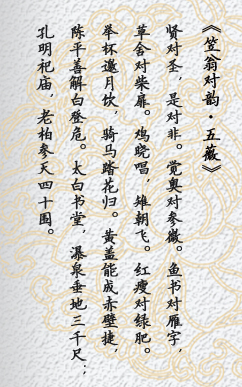 《笠翁对韵·五薇》
贤对圣，是对非。觉奥对参微。鱼书对雁字，
草舍对柴扉。鸡晓唱，雉朝飞。红瘦对绿肥。
举杯邀月饮，骑马踏花归。黄盖能成赤壁捷，
陈平善解白登危。太白书堂，瀑泉垂地三千尺；
孔明祀庙，老柏参天四十围。